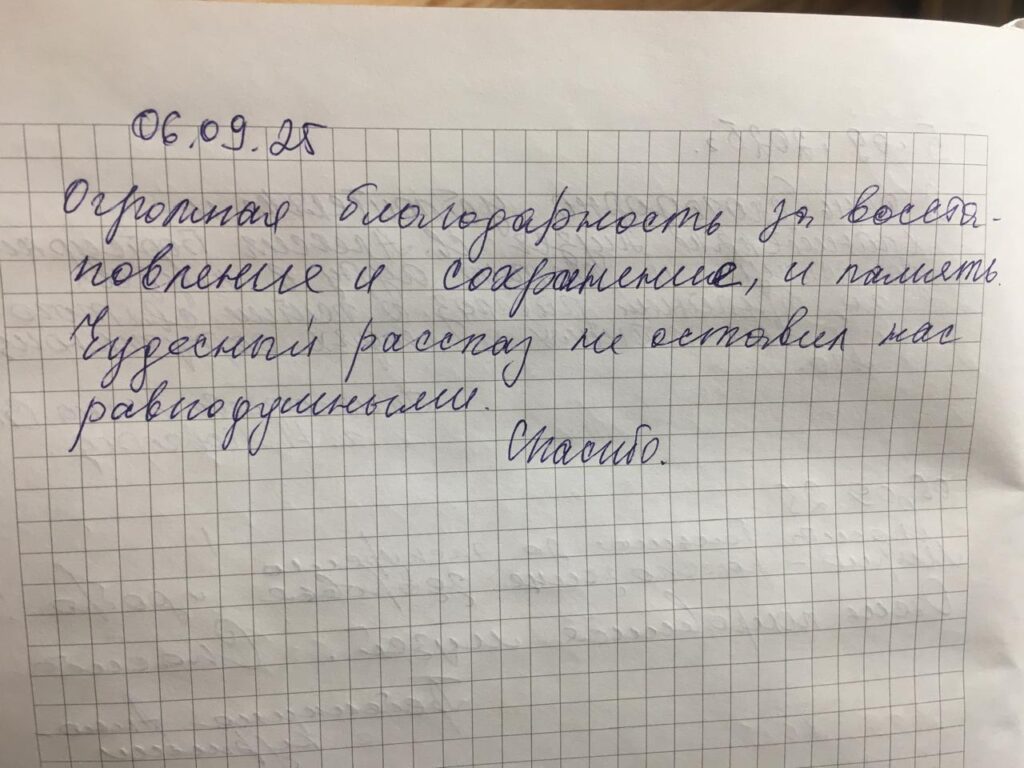 06.09.25
Огромная благодарность за восста-
новление и сохранение, и память.
Чудесный рассказ не оставил нас
равнодушными.
Спасибо.